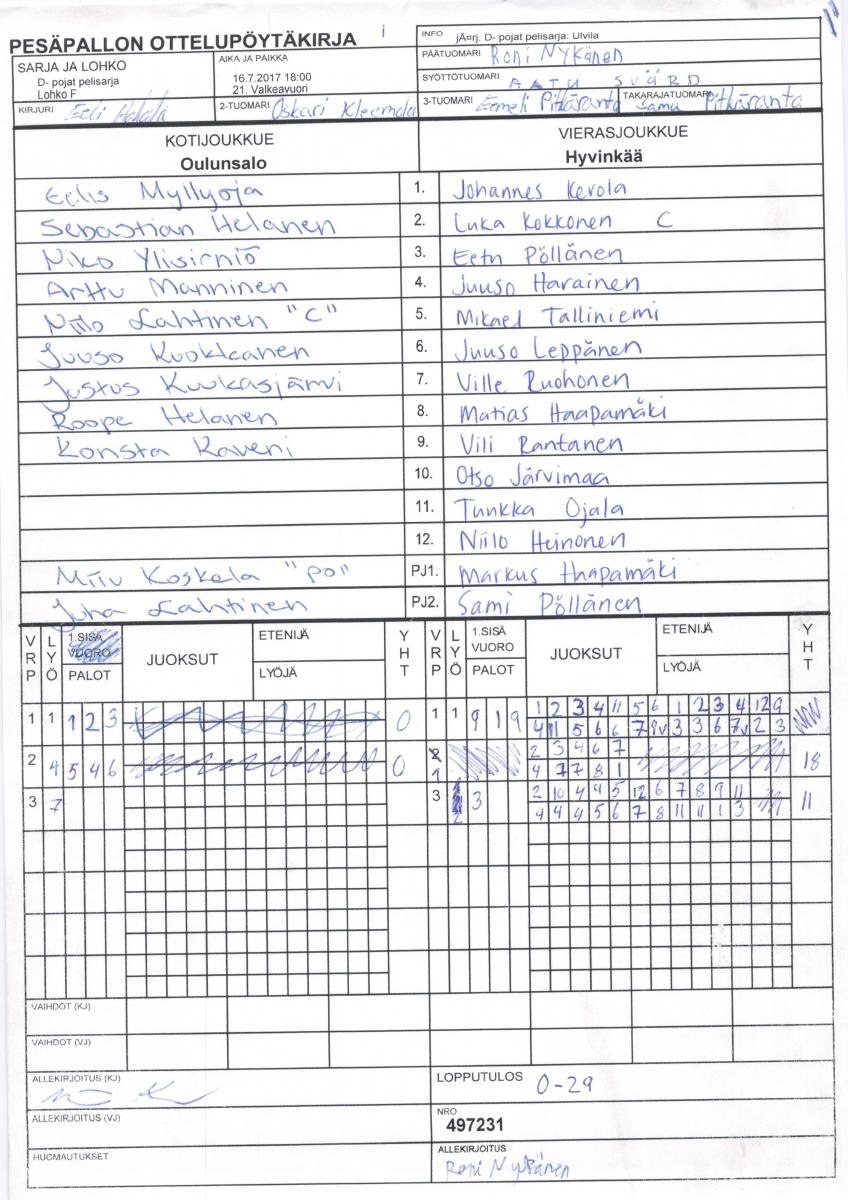 PESÄPALLON OTTELUPÖYTÄKIRJA
SARJA JA LOHKO
D- pojat pelisarja
Lohko F
AIKA JA PAIKKA
16.7.2017 18:00
21. Valkeavuori
INFO jÃ¤rj. D- pojat pelisarja: Ulvila
PÄÄTUOMARI Roni Nykänen
SYÖTTÖTUOMARI AATU SVÄRD
KIRJURI Eeli
2-TUOMARI Oskari Kleemola
3-TUOMARI Eemeli Pitkäranta
TAKARAJATUOMARI Samu Pitkäranta
KOTIJOUKKUE
Oulunsalo
VIERASJOUKKUE
Hyvinkää
Eelis Myllyoja 1. Johannes Kerola
Sebastian Helanen 2. Luka Kokkonen C
Niko Ylisirniö 3. Eetu Pöllänen
Arttu Manninen 4. Juuso Harainen
Niilo Lahtinen "C" 5. Mikael Talliniemi
Juuso Kuokkanen 6. Juuso Leppänen
Justus Kuukasjärvi 7. Ville Ruohonen
Roope Helanen 8. Matias Haapamäki
Konsta Kaveni 9. Vili Rantanen
10. Otso Järvimaa
11. Tuukka Ojala
12. Niilo Heinonen
Miiu Koskela "PO" PJ1. Markus Haapamäki
Juha Lahtinen PJ2. Sami Pöllänen
VRP LYÖ 1.SISÄ VUORO PALOT JUOKSUT ETENIJÄ LYÖJÄ YHT
VRP LYÖ 1.SISÄ VUORO PALOT JUOKSUT ETENIJÄ LYÖJÄ YHT
1 1 1 2 3 0
1 1 9 1 9
1 2 3 4 11 5 6 1 2 3 4 12 9
4 11 5 6 6 7 8v 3 3 6 7v 2 3
2 4 5 4 6 0
2 1
2 3 4 6 7
4 7 7 8 1
18
3 7
3 2 3
2 10 4 4 5 12 6 7 8 9 11
4 4 4 5 6 7 8 11 11 1 3
11
VAIHDOT (KJ)
VAIHDOT (VJ)
ALLEKIRJOITUS (KJ)
LOPPUTULOS 0-29
ALLEKIRJOITUS (VJ)
NRO
497231
HUOMAUTUKSET
ALLEKIRJOITUS
Roni Nykänen